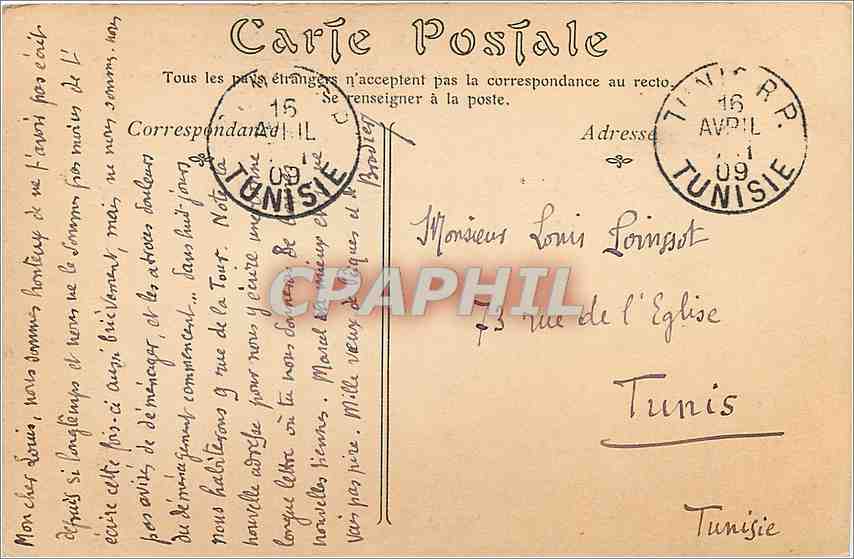 Carte Postale
Tous les pays étrangers n'acceptent pas la correspondance au recto.
Se renseigner à la poste.
Correspondance
Adresse
16
AVRIL
09
TUNISIE
TUNIS R.P.
16
AVRIL
09
TUNISIE
Mon cher Louis, nous sommes honteux de ne t'avoir pas écrit
depuis si longtemps et nous ne le sommes pas moins de t'
écrire cette fois-ci aussi brièvement, mais ne nous sommes nous
pas avisés de déménager, et les atroces douleurs
du déménagement commencent... Dans huit jours
nous habiterons 9 rue de la Tour. Note la
nouvelle adresse pour nous y écrire une
longue lettre où tu nous donneras de
nouvelles tiennes. Marcel va mieux et
vais pas pire. Mille vœux de Pâques et de
Monsieur Louis Poinssot
73 rue de l'Eglise
Tunis
Tunisie
CPAPHIL